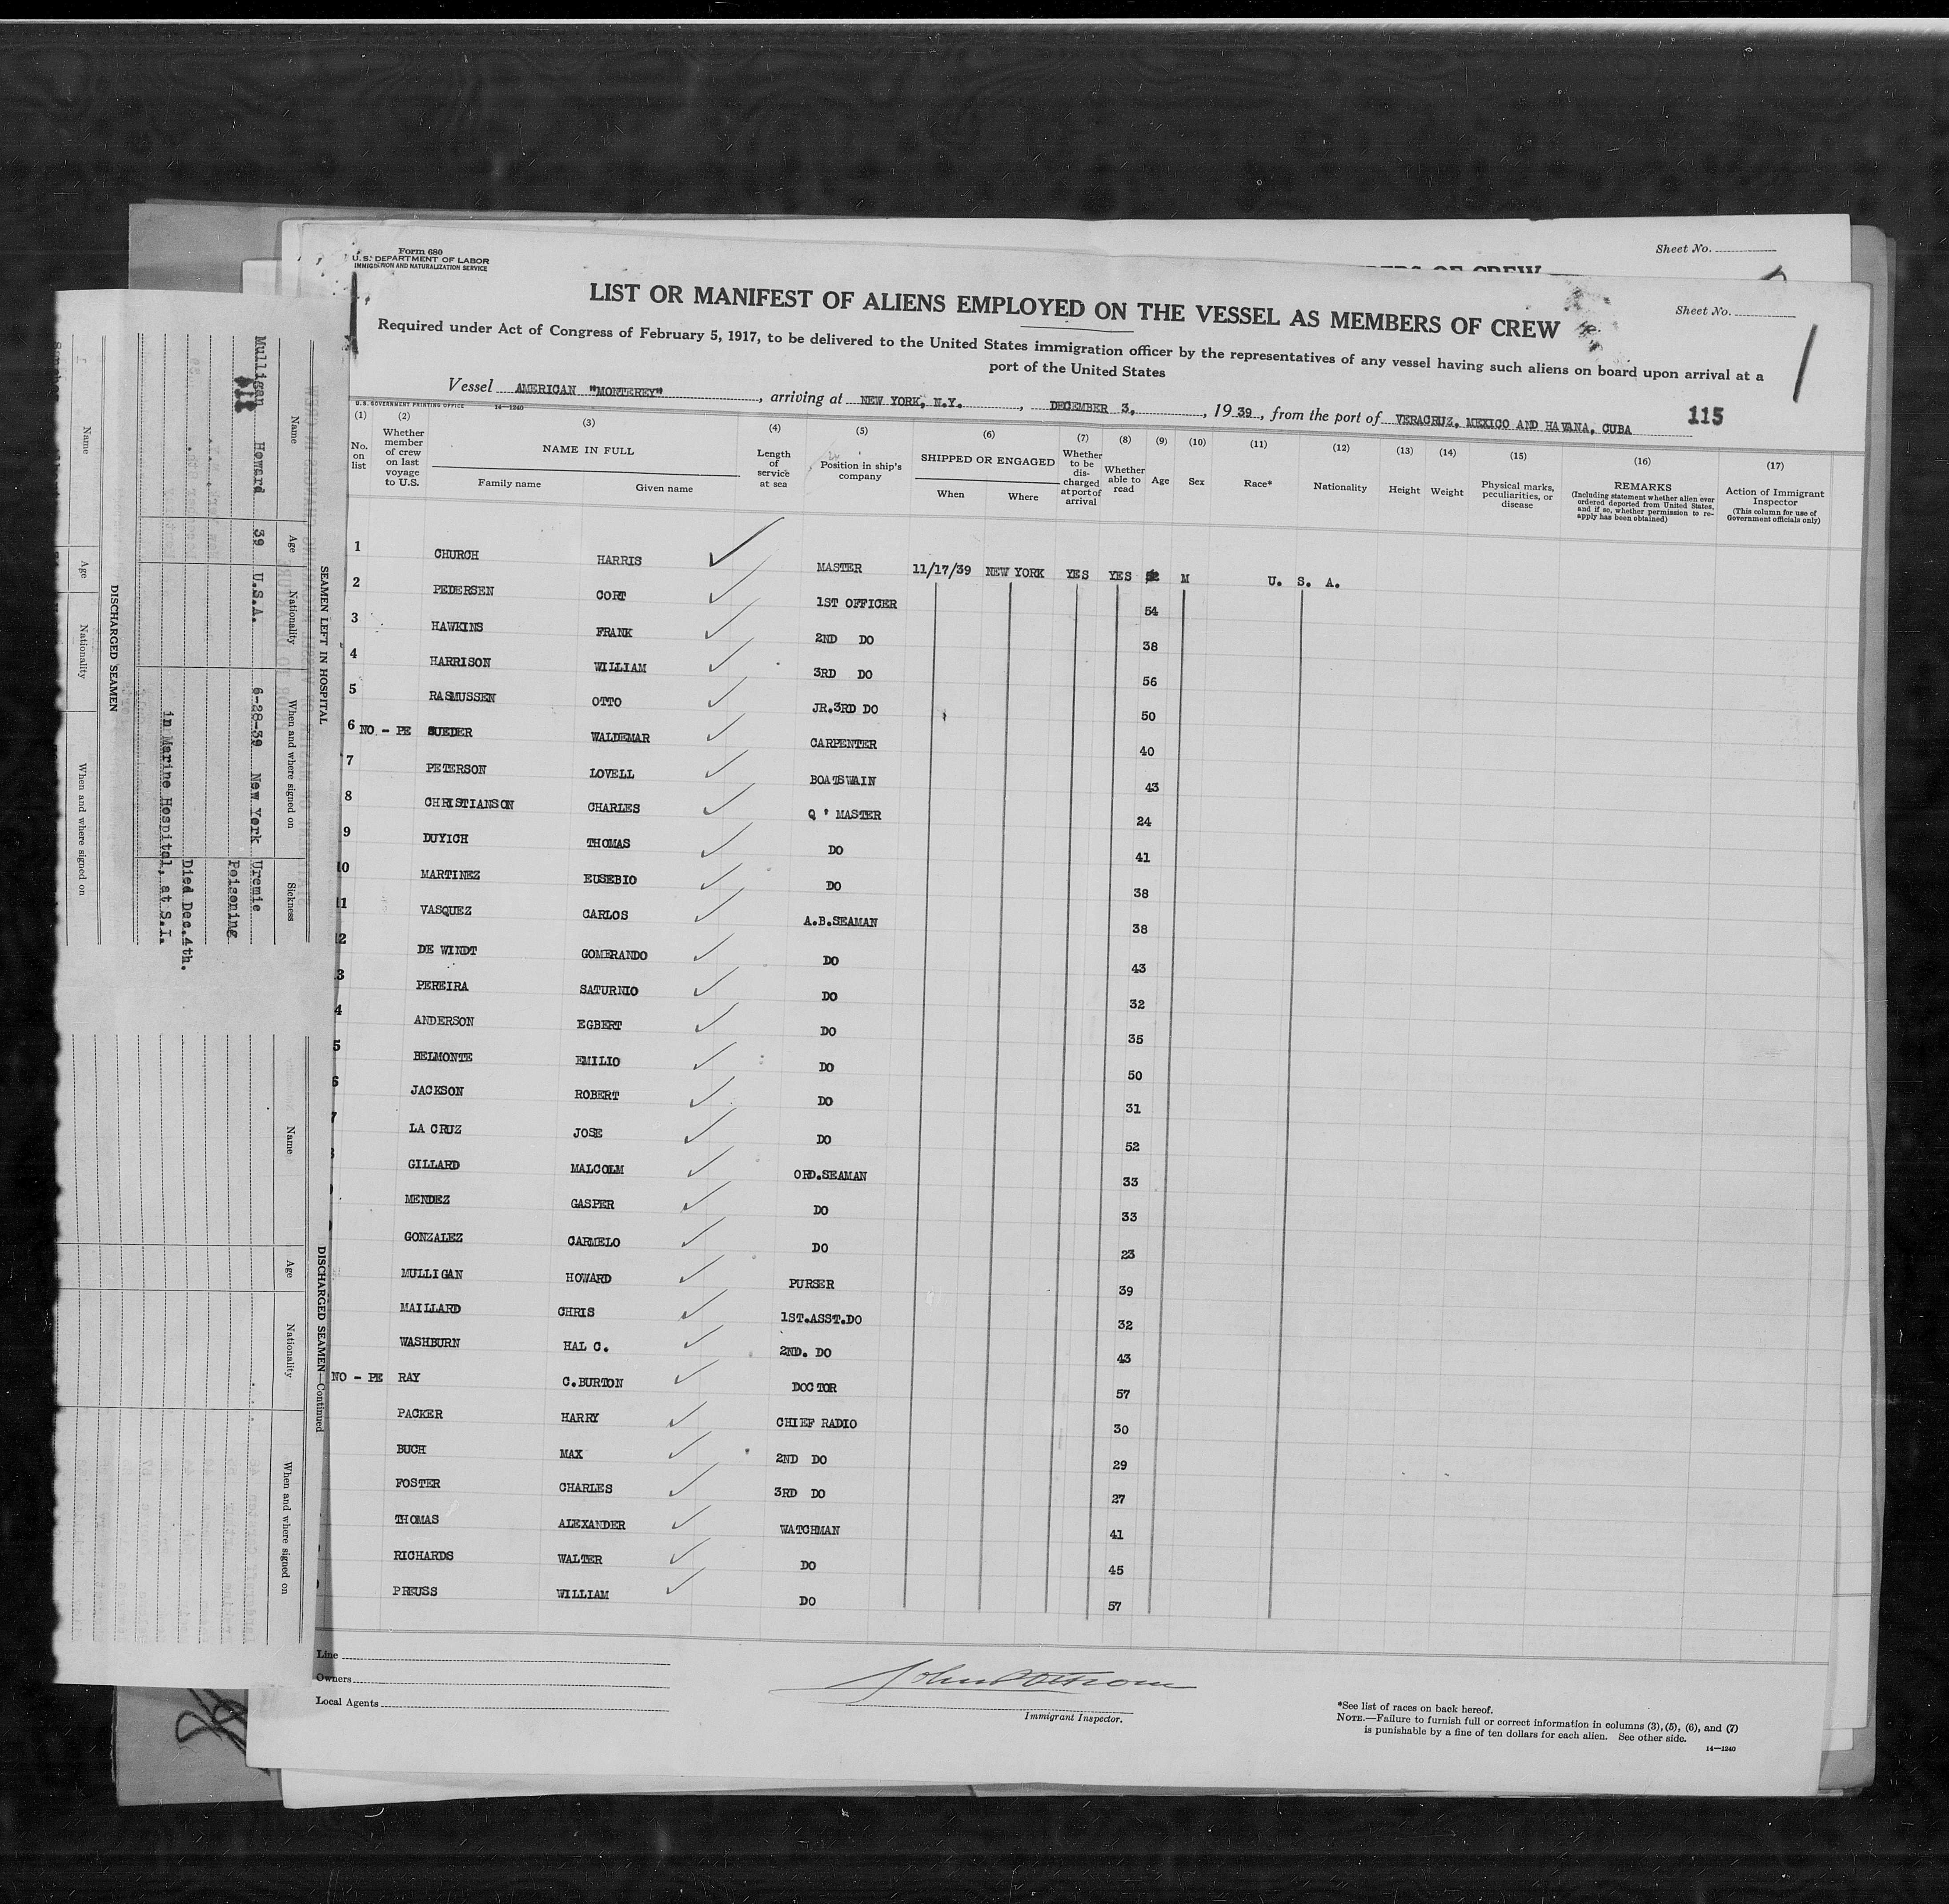 Sheet No.
Form 680
U. S. DEPARTMENT OF LABOR
IMMIGRATION AND NATURALIZATION SERVICE
LIST OR MANIFEST OF ALIENS EMPLOYED ON THE VESSEL AS MEMBERS OF CREW
Sheet No.
Required under Act of Congress of February 5, 1917, to be delivered to the United States immigration officer by the representatives of any vessel having such aliens on board upon arrival at a
port of the United States
Vessel AMERICAN "MONTEREY", arriving at NEW YORK, N.Y., DECEMBER 3, 19 39, from the port of VERACRUZ, MEXICO AND HAVANA, CUBA 115
U. S. GOVERNMENT PRINTING OFFICE 14—1240
(1) No. on list
(2) Whether member of crew on last voyage to U.S.
(3) NAME IN FULL Family name Given name
(4) Length of service at sea
(5) Position in ship's company
(6) SHIPPED OR ENGAGED When Where
(7) Whether to be discharged at port of arrival
(8) Whether able to read
(9) Age
(10) Sex
(11) Race*
(12) Nationality
(13) Height
(14) Weight
(15) Physical marks, peculiarities, or disease
(16) REMARKS (Including statement whether alien ever ordered deported from United States, and if so, whether permission to reapply has been obtained)
(17) Action of Immigrant Inspector (This column for use of Government officials only)
1 CHURCH HARRIS MASTER 11/17/39 NEW YORK YES YES M U. S. A.
2 PEDERSEN CORT 1ST OFFICER 54
3 HAWKINS FRANK 2ND DO 38
4 HARRISON WILLIAM 3RD DO 56
5 RASMUSSEN OTTO JR.3RD DO 50
6 NO - PE SUEDER WALDEMAR CARPENTER 40
7 PETERSON LOVELL BOATSWAIN 43
8 CHRISTIANSON CHARLES Q ' MASTER 24
9 DUYICH THOMAS DO 41
10 MARTINEZ EUSEBIO DO 38
11 VASQUEZ CARLOS A.B.SEAMAN 38
12 DE WINDT GOMERANDO DO 43
3 PEREIRA SATURNIO DO 32
4 ANDERSON EGBERT DO 35
5 BELMONTE EMILIO DO 50
6 JACKSON ROBERT DO 31
7 LA CRUZ JOSE DO 52
GILLARD MALCOLM ORD.SEAMAN 33
MENDEZ GASPER DO 33
GONZALEZ CARMELO DO 23
MULLIGAN HOWARD PURSER 39
MAILLARD CHRIS 1ST.ASST.DO 32
WASHBURN HAL C. 2ND. DO 43
NO - PE RAY C.BURTON DOCTOR 57
PACKER HARRY CHIEF RADIO 30
BUCH MAX 2ND DO 29
FOSTER CHARLES 3RD DO 27
THOMAS ALEXANDER WATCHMAN 41
RICHARDS WALTER DO 45
PREUSS WILLIAM DO 57
Line
Owners
Local Agents
Immigrant Inspector.
*See list of races on back hereof.
NOTE.—Failure to furnish full or correct information in columns (3), (5), (6), and (7)
is punishable by a fine of ten dollars for each alien. See other side.
14—1240
SEAMEN LEFT IN HOSPITAL
Name Age Nationality When and where signed on Sickness
Mulligan Howard 39 U.S.A. 6-28-39 New York Uremic
Poisening
Died Dec.4th.
in Marine Hospital, at S.I.
DISCHARGED SEAMEN
Name Age Nationality When and where signed on
DISCHARGED SEAMEN—Continued
Name Age Nationality When and where signed on